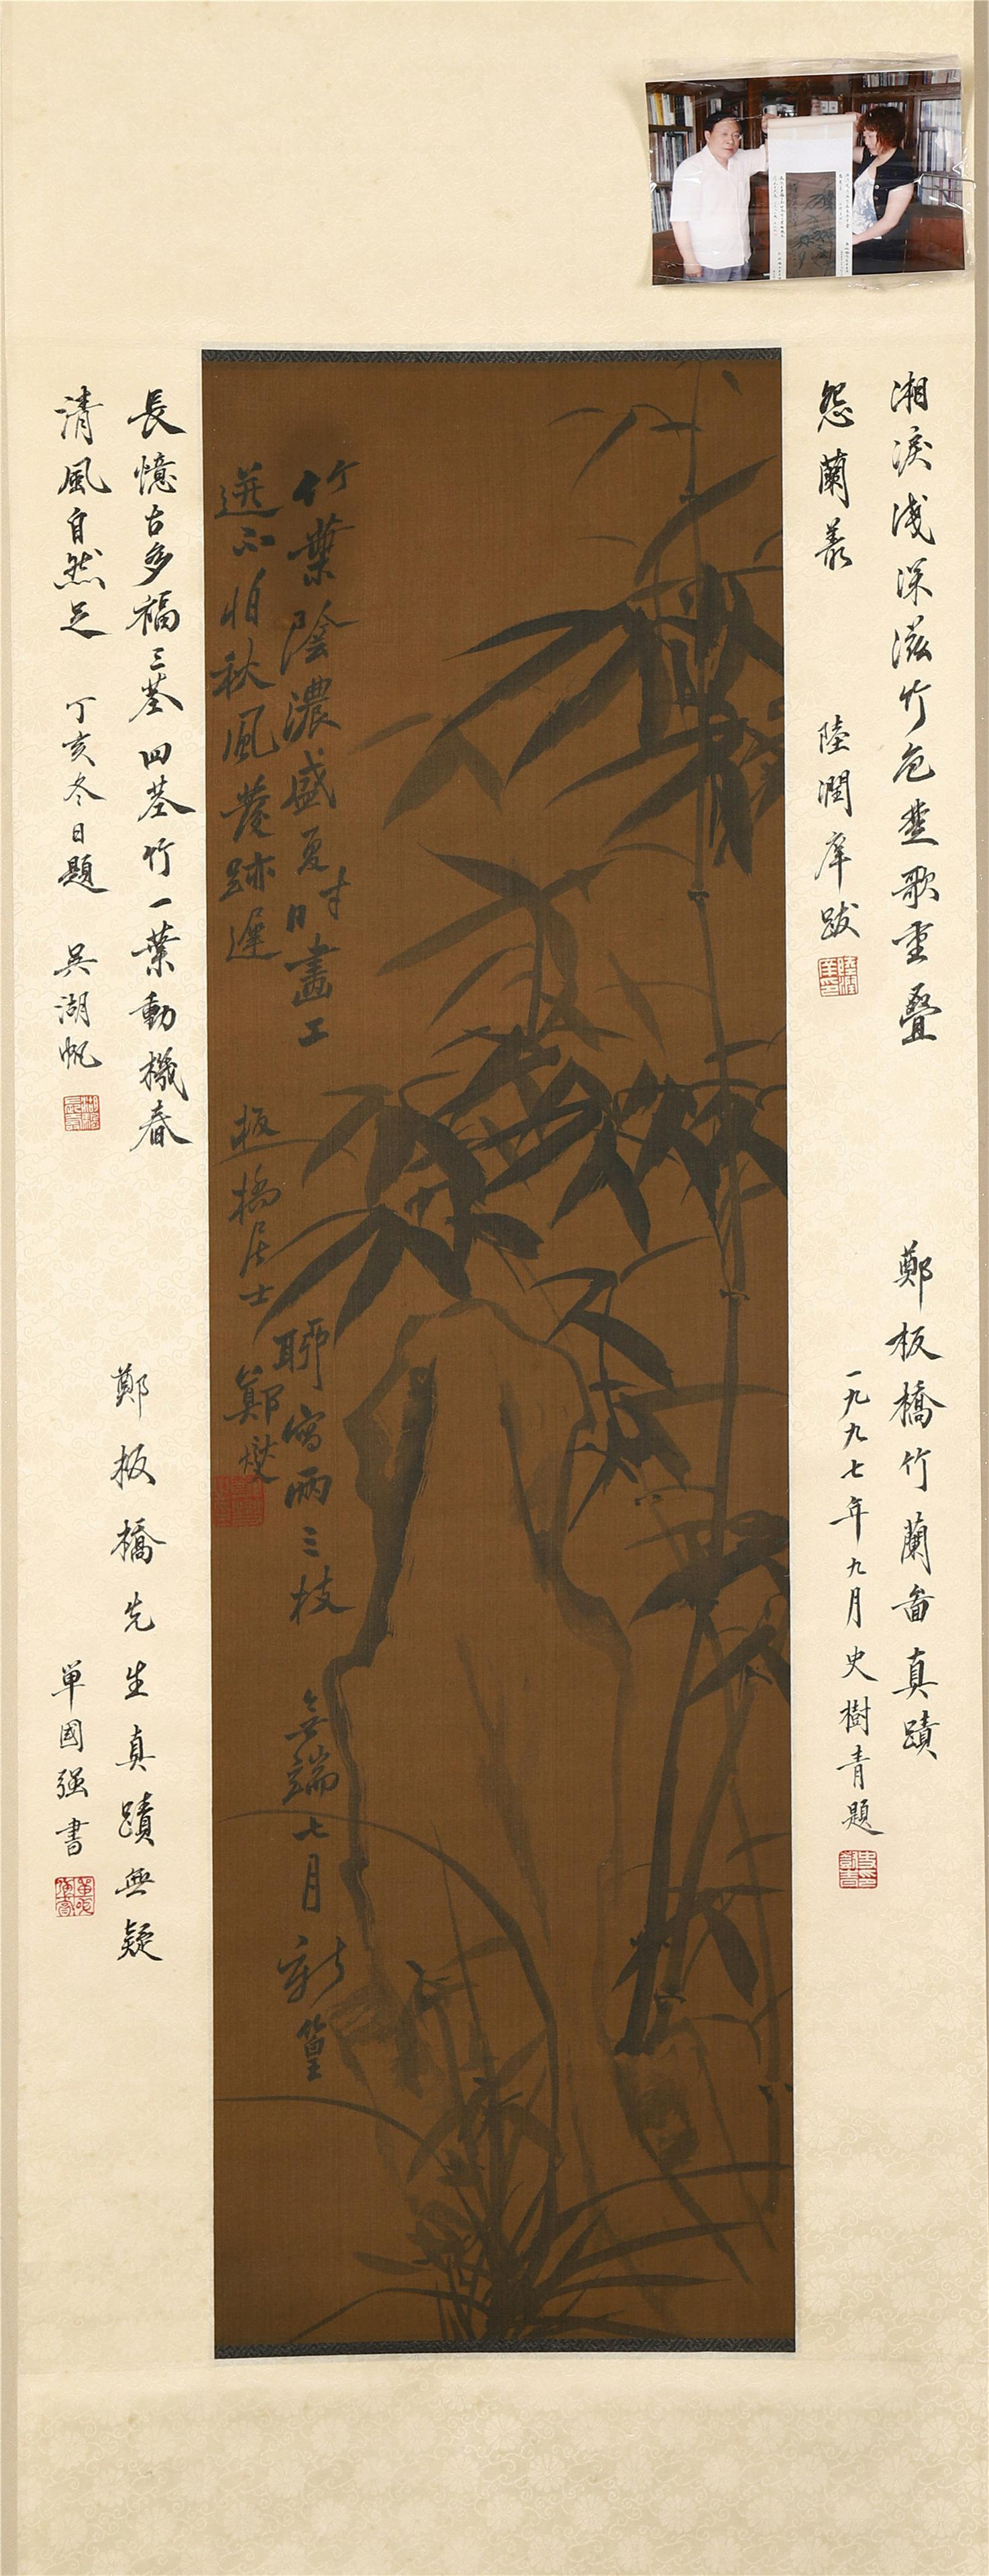 湘淚淺深滋竹色楚歌重疊
怨蘭叢
陸潤庠跋
鄭板橋竹蘭畫真蹟
一九九七年九月史樹青題
竹葉陰濃盛夏時畫工
聊寫兩三枝
無端七月新篁
迸不怕秋風發跡遲
板橋居士
鄭燮
長憶古多福三莖四莖竹一葉動機春
清風自然足
丁亥冬日題
吳湖帆
鄭板橋先生真蹟無疑
單國强書